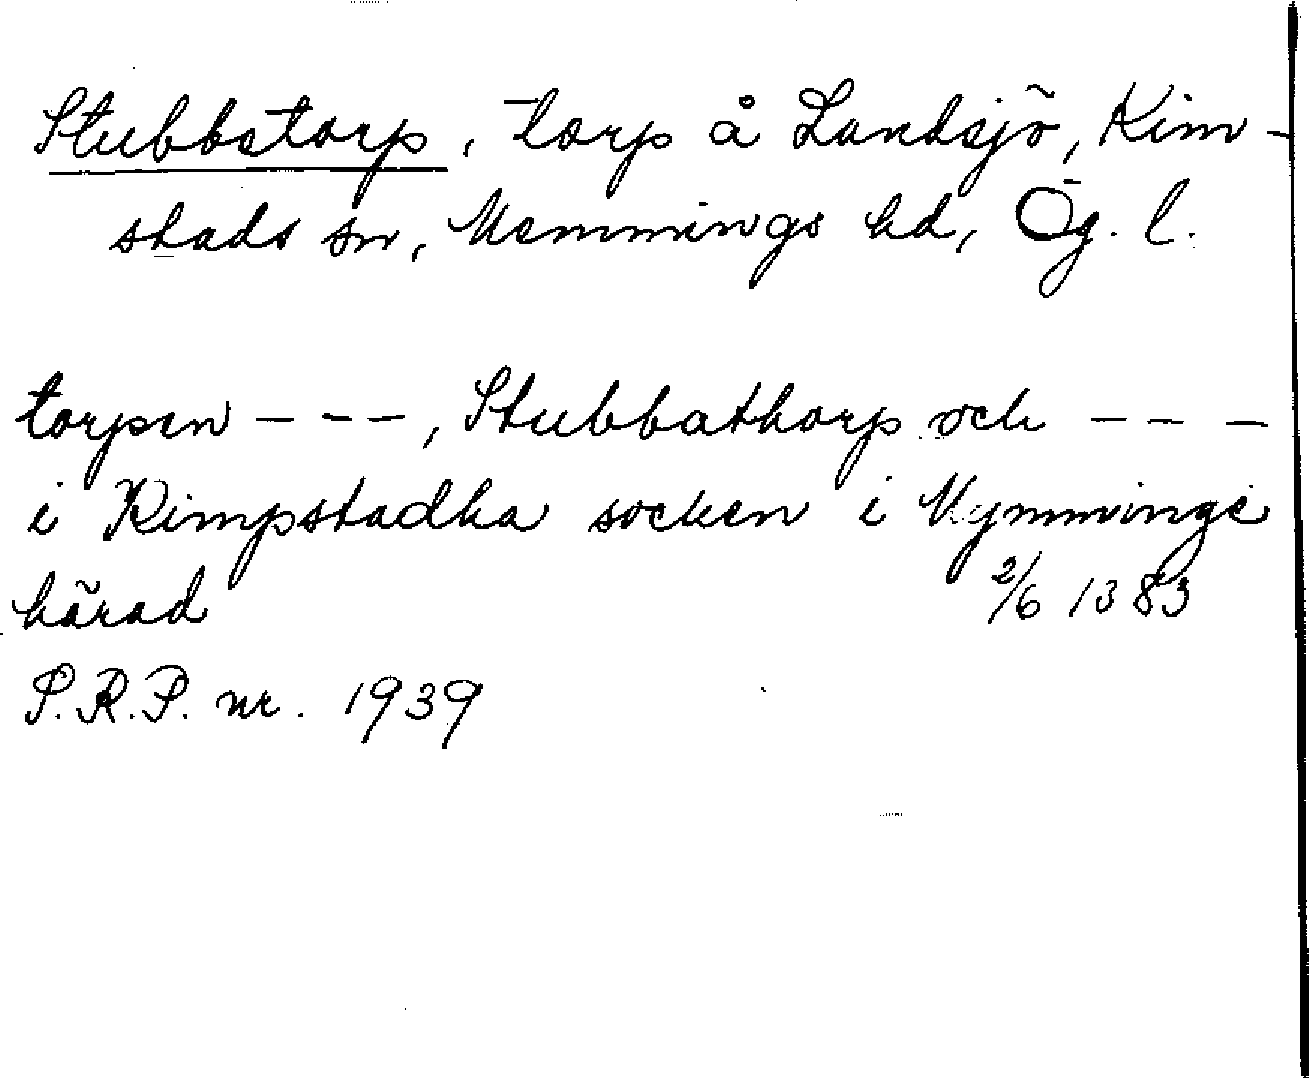 Stubbetorp, torp å Landsjö, Kim-
stads sn, Memmings hd, Ög. l.
torpen - - -, Stubbathorp och - - -
i Kimpstadha socken i Mymminge
härad 2/6 1383
S.R.P. nr. 1939